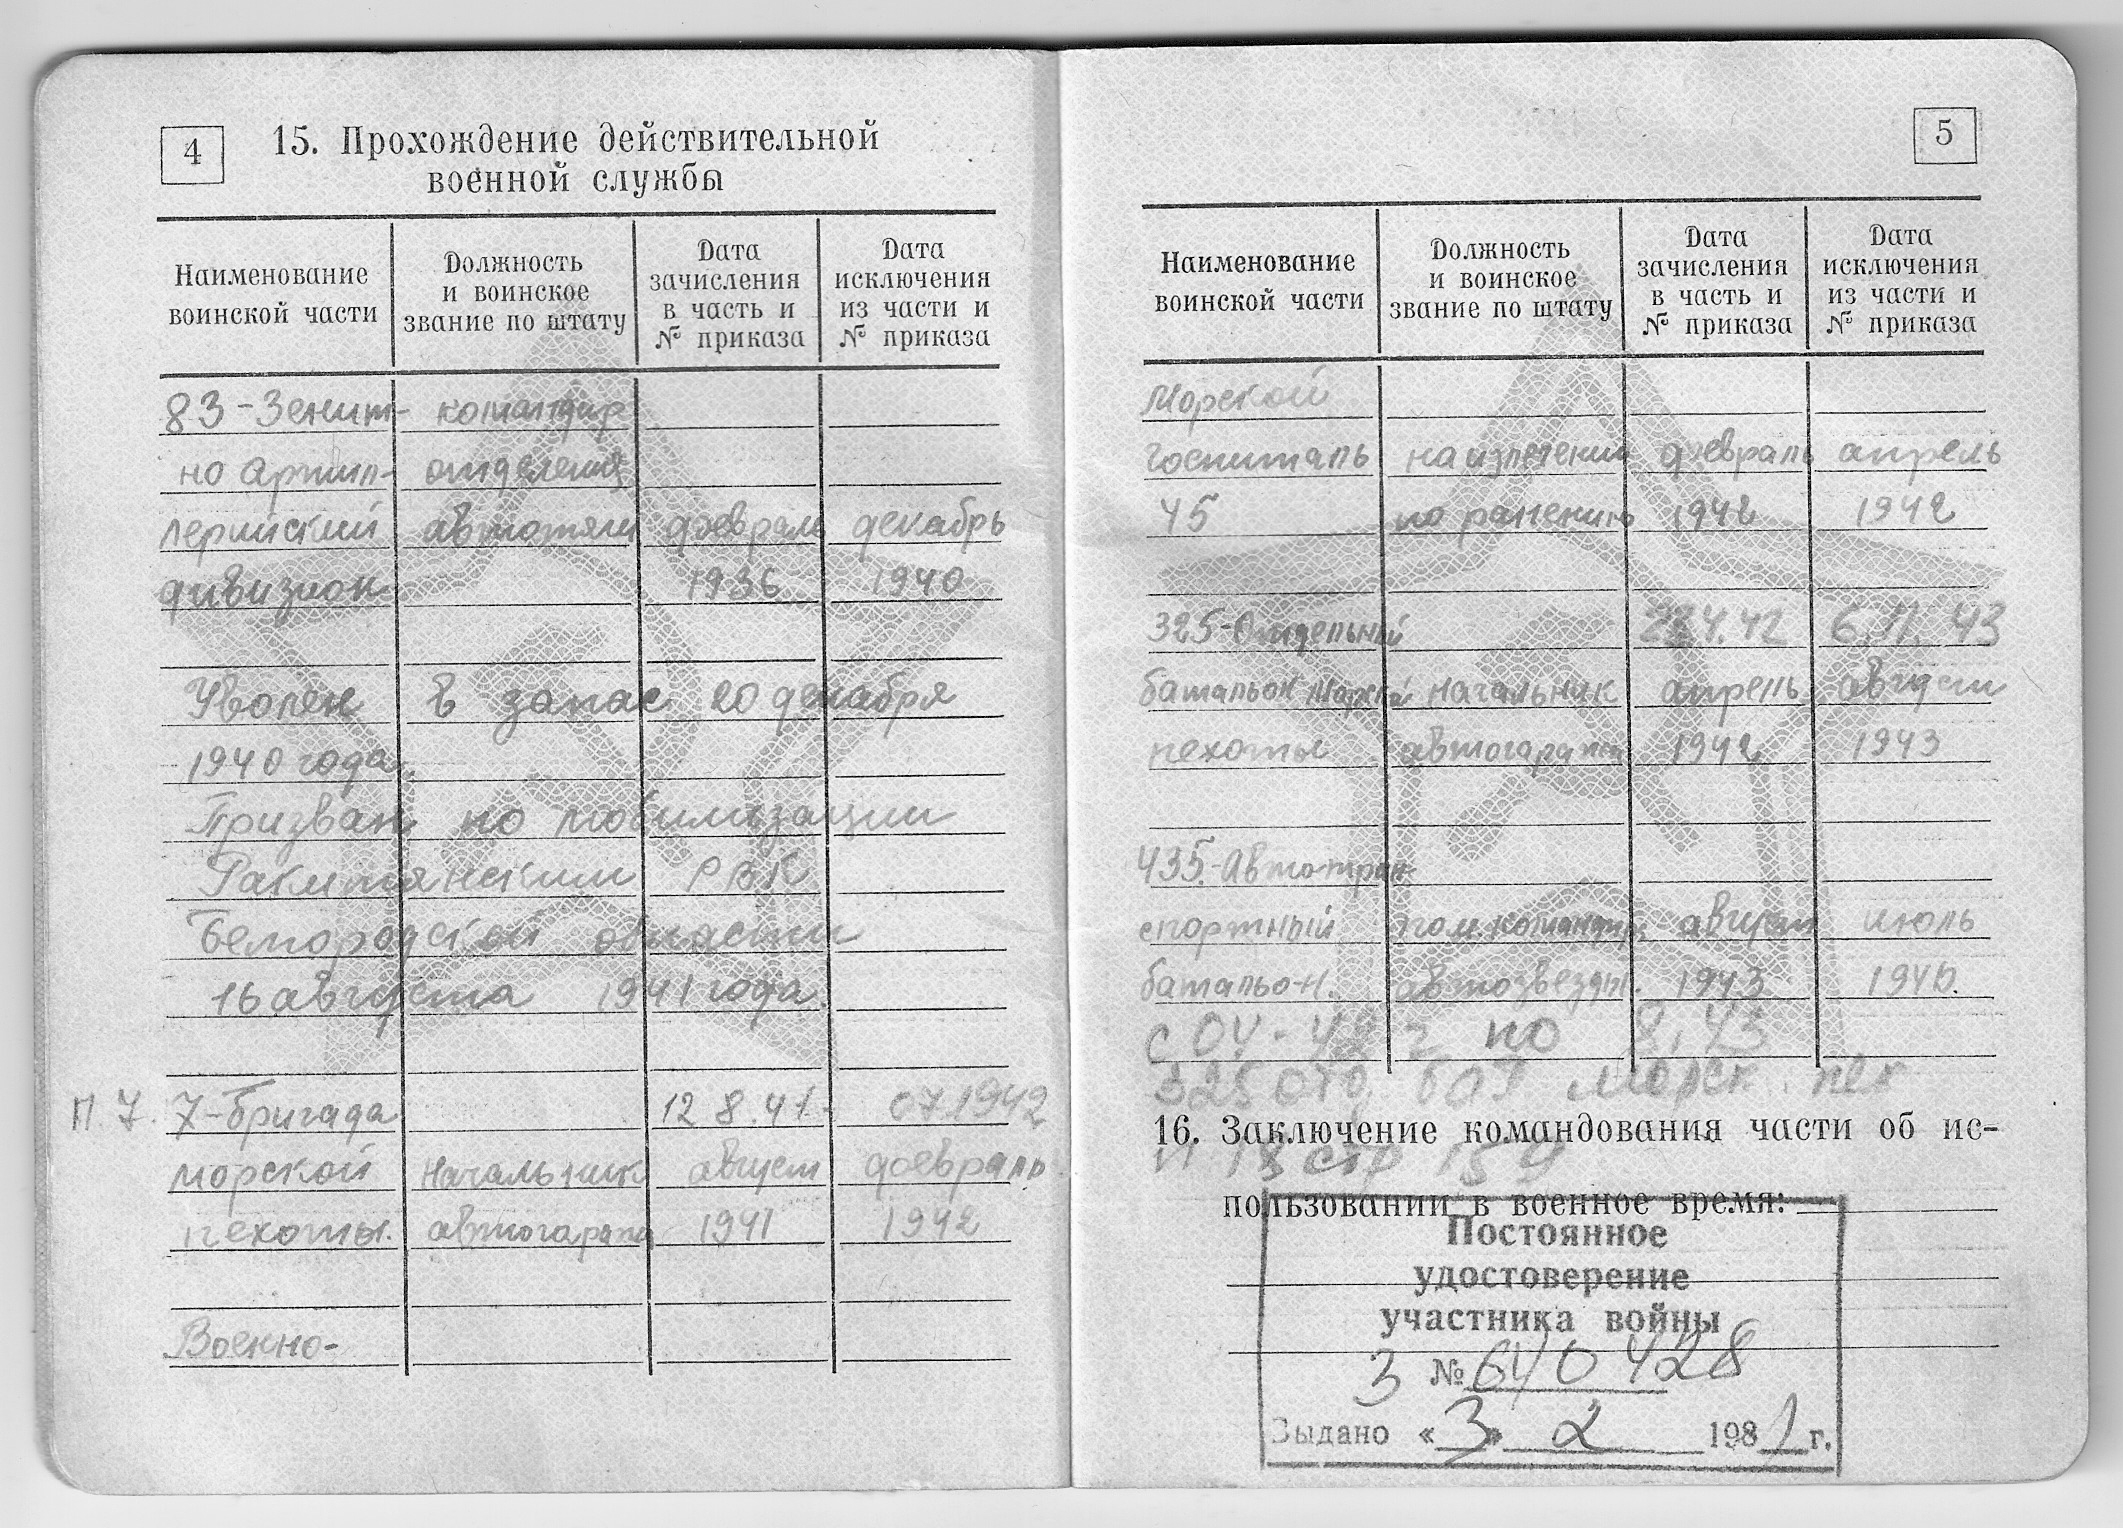 4
15. Прохождение действительной
военной службы
Наименование
воинской части
Должность
и воинское
звание по штату
Дата
зачисления
в часть и
№ приказа
Дата
исключения
из части и
№ приказа
83-Зенит- командир
но артил- отделения
лерийский автотяги февраль декабрь
дивизион 1936 1940
Уволен в запас 20 декабря
1940 года.
Призван по мобилизации
Ракитянским РВК
Белгородской области
16 августа 1941 года.
П. 7. 7-бригада 12 8.41. 07.1942
морской начальник август февраль
пехоты. автогаража 1941 1942
Военно-
5
Наименование
воинской части
Должность
и воинское
звание по штату
Дата
зачисления
в часть и
№ приказа
Дата
исключения
из части и
№ приказа
Морской
госпиталь на излечении февраль апрель
45 по ранению 1942 1942
325-Отдельный 6.11.43
батальон морской начальник апрель август
пехоты автогаража 1942 1943
435-Автотран-
спортный пом. командир август июль
батальон. 1943
с 04-42 г по 8.43
325 отд бат морск. пех
16. Заключение командования части об ис-
П 13 стр 159
пользовании в военное время:
Постоянное
удостоверение
участника войны
З № 640428
Выдано «3» 2 1981 г.